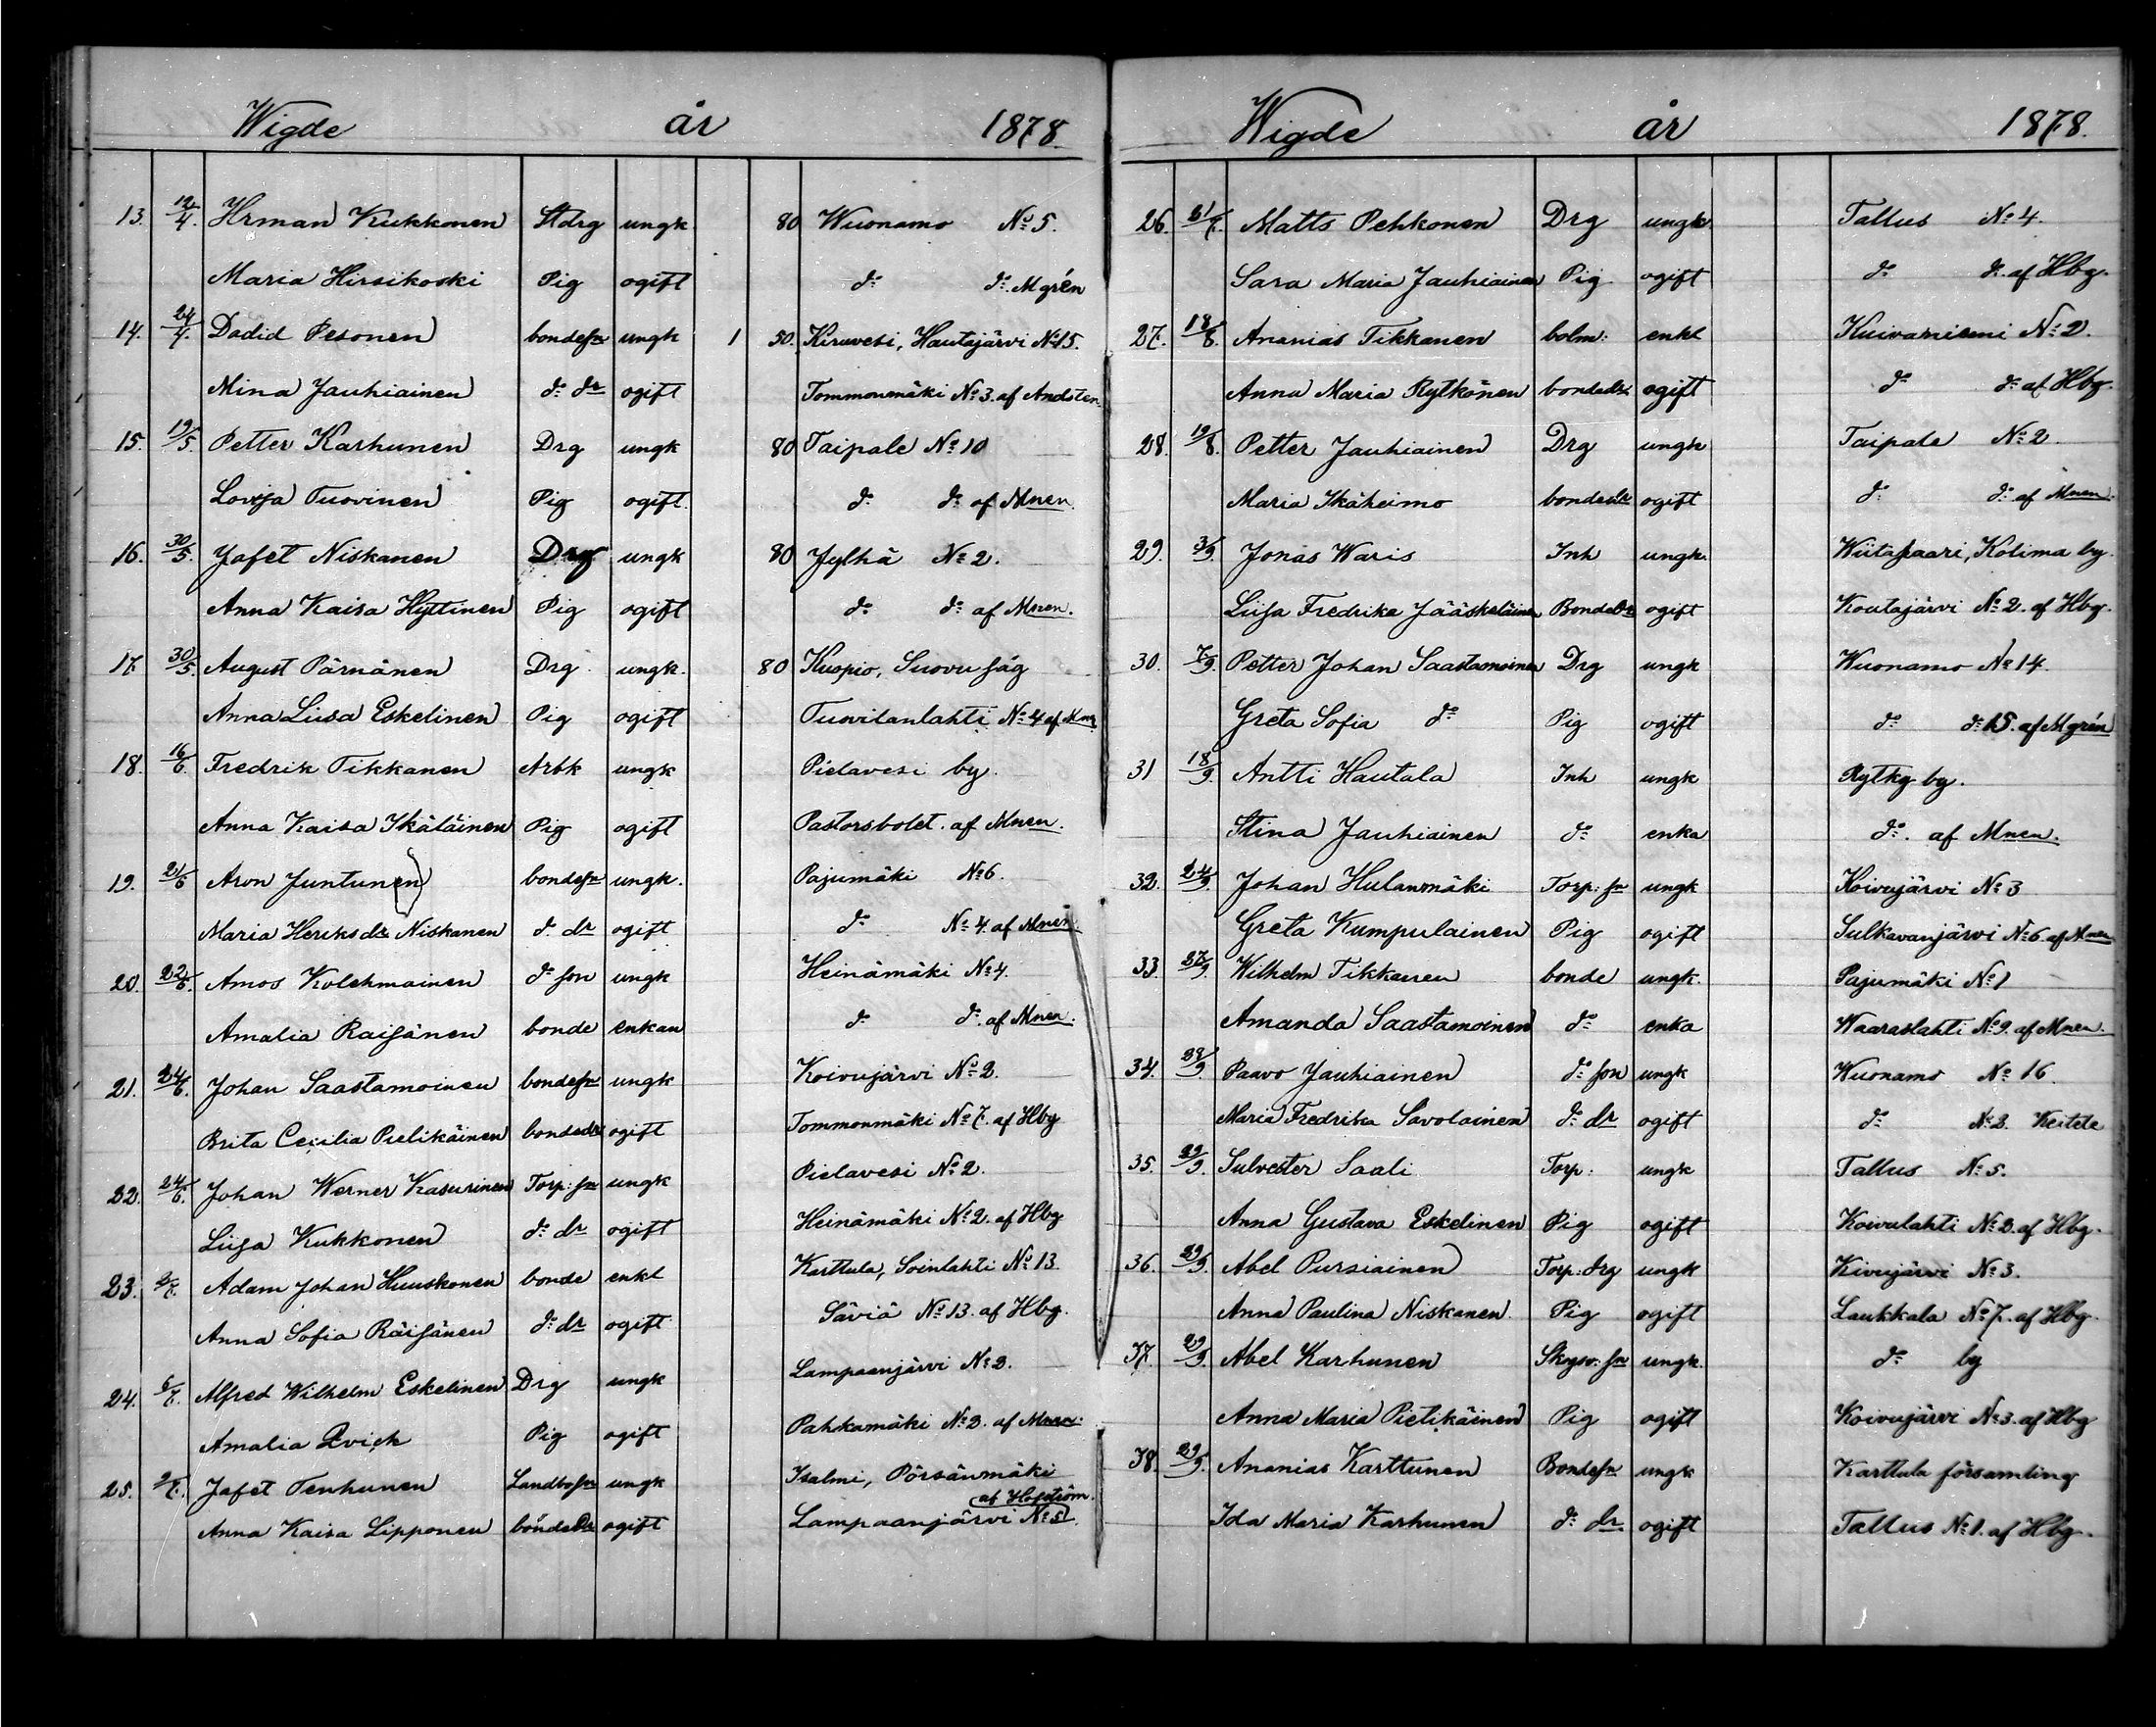 Wigde år 1878.
13. 12/4. Hrman Kukkonen Stdrg ungk 80 Wuonamo No 5.
Maria Hirsikoski Pig ogift do do Mgrén
14. 24/4. Dadid Pesonen bondesn ungk 1 50. Kiruvesi, Hautajärvi No 15.
Mina Jauhiainen do dr ogift Tommonmäki No 3. af Andsten
15. 19/5. Petter Karhunen Drg ungk 80 Taipale No 10
Lovisa Tuovinen Pig ogift. do do af Mnen.
16. 30/5. Jafet Niskanen Drg ungk 80 Jylhä No 2.
Anna Kaisa Hyttinen Pig ogift do do af Mnen.
17. 30/5. August Pärnänen Drg ungk. 80 Kuopio, Suovu såg
Anna Liisa Eskelinen Pig ogift Tuovilanlahti No 4 af Mnen
18. 16/6. Fredrik Tikkanen Arbk ungk Pielavesi by.
Anna Kaisa Ikäläinen Pig ogift Pastorsbolet. af Mnen.
19. 21/6 Aron Juntunen bondesn ungk. Pajumäki No 6.
Maria Henriksdr Niskanen do dr ogift do No 4. af Mnen
20. 22/6. Amos Kolehmainen do son ungk Heinämäki No 4.
Amalia Raisänen bonde enkan do do af Mnen.
21. 24/6. Johan Saastamoinen bondesn ungk Koivujärvi No 2.
Brita Cecilia Pielikäinen bondedr ogift Tommonmäki No 7. af Hbg
22. 24/6. Johan Werner Kasurinen Torp: sn ungk Pielavesi No 2.
Liisa Kukkonen do dr ogift Heinämäki No 2. af Hbg
23. 2/7. Adam Johan Huuskonen bonde enkl Karttula, Soinlahti No 13.
Anna Sofia Räisänen do dr ogift Säviä No 13. af Hbg.
24. 6/7. Alfred Wilhelm Eskelinen Drg ungk Lampaanjärvi No 3.
Amalia Qvick Pig ogift Pahkamäki No 2. af Mnen.
25. 9/7. Jafet Tenhunen Landbosn ungk Isalmi, Pörsänmäki
af Hofström.
Anna Kaisa Lipponen bondedr ogift Lampaanjärvi No 5
Wigde år 1878.
26. 31/7. Matts Pehkonen Drg ungk Tallus No 4.
Sara Maria Jauhiainen Pig ogift do do af Hbg.
27. 18/8. Ananias Tikkanen bolm: enkl Kuivaniemi No 2.
Anna Maria Rytkönen bondedr ogift do do af Hbg.
28. 19/8. Petter Jauhiainen Drg ungk Taipale No 2
Maria Ikäheimo bondedr ogift do do af Mnen.
29. 3/9. Jonas Waris Inh ungk Wiitasaari, Kolima by.
Luisa Fredrika Jääskeläinen Bondedr ogift Koutajärvi No 2. af Hbg.
30. 7/9. Petter Johan Saastamoinen Drg ungk Wuonamo No 14.
Greta Sofia do Pig ogift do do 15. af Mgrén
31 18/9. Antti Hautala Inh ungk Rytkg by.
Stina Jauhiainen do enka do. af Mnen.
32. 24/9. Johan Hulanmäki Torp: sn ungk Koivujärvi No 3
Greta Kumpulainen Pig ogift Sulkavanjärvi No 6. af Mnen
33. 27/9. Wilhelm Tikkanen bonde ungk. Pajumäki No 1
Amanda Saastamoinen do enka Waaraslahti No 9. af Mnen.
34. 28/9. Paavo Jauhiainen do son ungk Wuonamo No 16.
Maria Fredrika Savolainen do dr ogift do No 3. Keitele
35. 29/9. Sulvester Saali Torp: ungk Tallus No 5.
Anna Gustava Eskelinen Pig ogift Koivulahti No 2. af Hbg.
36. 29/9. Abel Pursiainen Torp: drg ungk Kivujärvi No 3.
Anna Paulina Niskanen Pig ogift Laukkala No 7. af Hbg.
37. 29/9. Abel Karhunen Skgsv: sn ungk. do by
Anna Maria Pietikäinen Pig ogift Koivujärvi No 3. af Hbg
38. 29/9. Ananias Karttunen Bondesn ungk Karttula församling
Ida Maria Karhunen do dr ogift Tallus No 1. af Hbg.